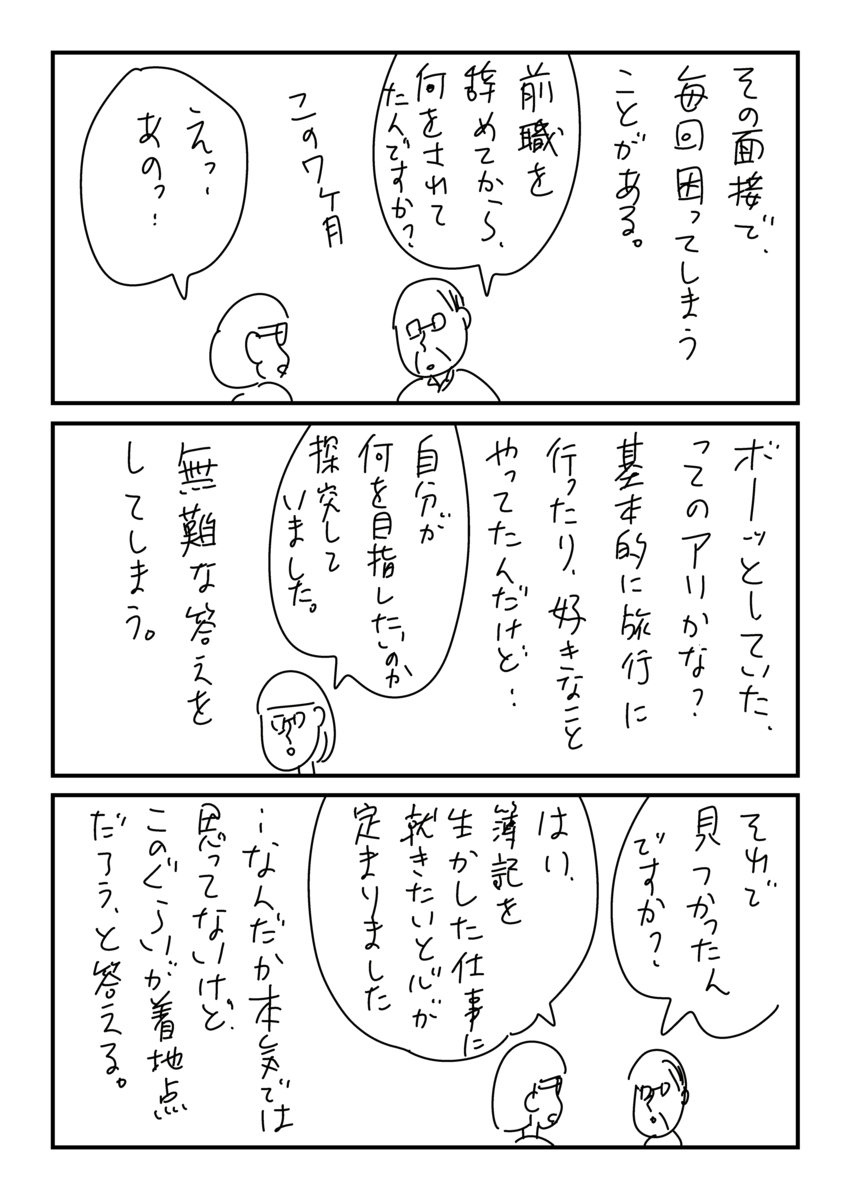 その面接で、
毎回困ってしまう
ことがある。
前職を
辞めてから、
何をされて
たんですか？
この7ヶ月
えっ…
あのっ…
ボーッとしていた、
ってのアリかな？
基本的に旅行に
行ったり、好きなこと
やってたんだけど…
自分が
何を目指したいのか
探究して
いました。
無難な答えを
してしまう。
それで
見つかったん
ですか？
はい、
簿記を
生かした仕事に
就きたいと心が
定まりました
…なんだか本気では
思ってないけど、
このぐらいが着地点
だろう、と答える。